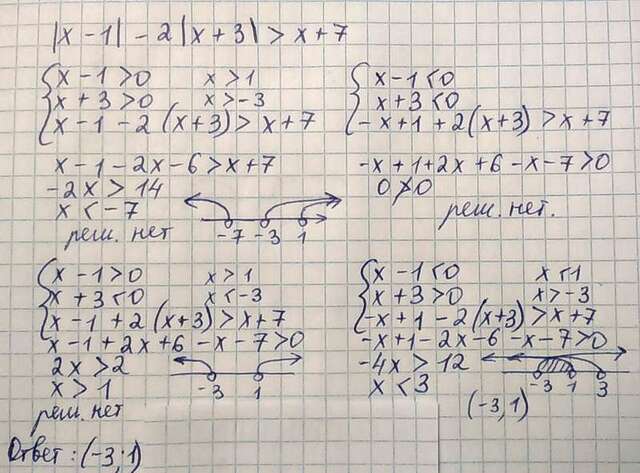 |x - 1| - 2|x + 3| > x + 7
x - 1 > 0 x > 1
x + 3 > 0 x > -3
x - 1 - 2(x+3) > x + 7
x - 1 - 2x - 6 > x + 7
-2x > 14
x < -7
реш. нет
-7 -3 1
x - 1 < 0
x + 3 < 0
-x + 1 + 2(x+3) > x + 7
-x + 1 + 2x + 6 - x - 7 > 0
0 ≯ 0
реш. нет.
x - 1 > 0 x > 1
x + 3 < 0 x < -3
x - 1 + 2(x+3) > x + 7
x - 1 + 2x + 6 - x - 7 > 0
2x > 2
x > 1
-3 1
реш. нет
x - 1 < 0 x < 1
x + 3 > 0 x > -3
-x + 1 - 2(x+3) > x + 7
-x + 1 - 2x - 6 - x - 7 > 0
-4x > 12
x < 3
-3 1 3
(-3, 1)
Ответ: (-3; 1)